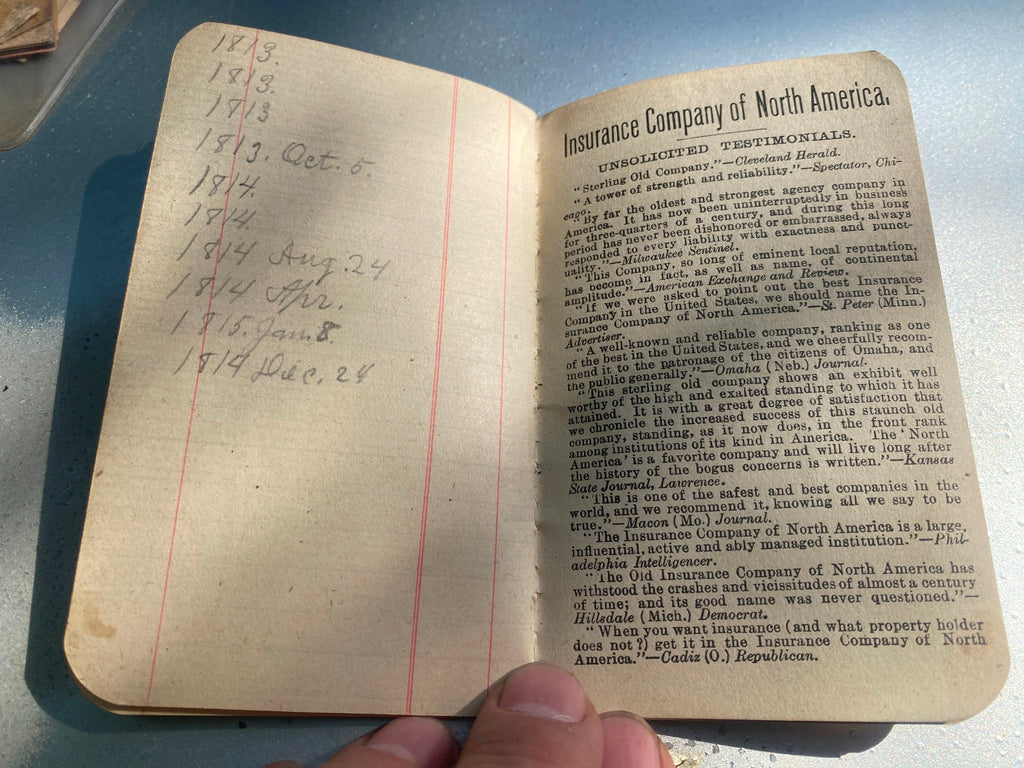 1813.
1813.
1713
1813. Oct. 5.
1814.
1814.
1814 Aug. 24
1814 Apr.
1815. Jan. 8.
1814 Dec. 24
Insurance Company of North America.
UNSOLICITED TESTIMONIALS.
"Sterling Old Company."—Cleveland Herald.
"A tower of strength and reliability."—Spectator, Chi-
cago.
"By far the oldest and strongest agency company in
America. It has now been uninterruptedly in business
for three-quarters of a century, and during this long
period has never been dishonored or embarrassed, always
responded to every liability with exactness and punct-
uality."—Milwaukee Sentinel.
"This Company, so long of eminent local reputation,
has become in fact, as well as name, of continental
amplitude."—American Exchange and Review.
"If we were asked to point out the best Insurance
Company in the United States, we should name the In-
surance Company of North America."—St. Peter (Minn.)
Advertiser.
"A well-known and reliable company, ranking as one
of the best in the United States, and we cheerfully recom-
mend it to the patronage of the citizens of Omaha, and
the public generally."—Omaha (Neb.) Journal.
"This sterling old company shows an exhibit well
worthy of the high and exalted standing to which it has
attained. It is with a great degree of satisfaction that
we chronicle the increased success of this staunch old
company, standing, as it now does, in the front rank
among institutions of its kind in America. The 'North
America' is a favorite company and will live long after
the history of the bogus concerns is written."—Kansas
State Journal, Lawrence.
"This is one of the safest and best companies in the
world, and we recommend it, knowing all we say to be
true."—Macon (Mo.) Journal.
"The Insurance Company of North America is a large,
influential, active and ably managed institution."—Phil-
adelphia Intelligencer.
"The Old Insurance Company of North America has
withstood the crashes and vicissitudes of almost a century
of time; and its good name was never questioned."—
Hillsdale (Mich.) Democrat.
"When you want insurance (and what property holder
does not?) get it in the Insurance Company of North
America."—Cadiz (O.) Republican.